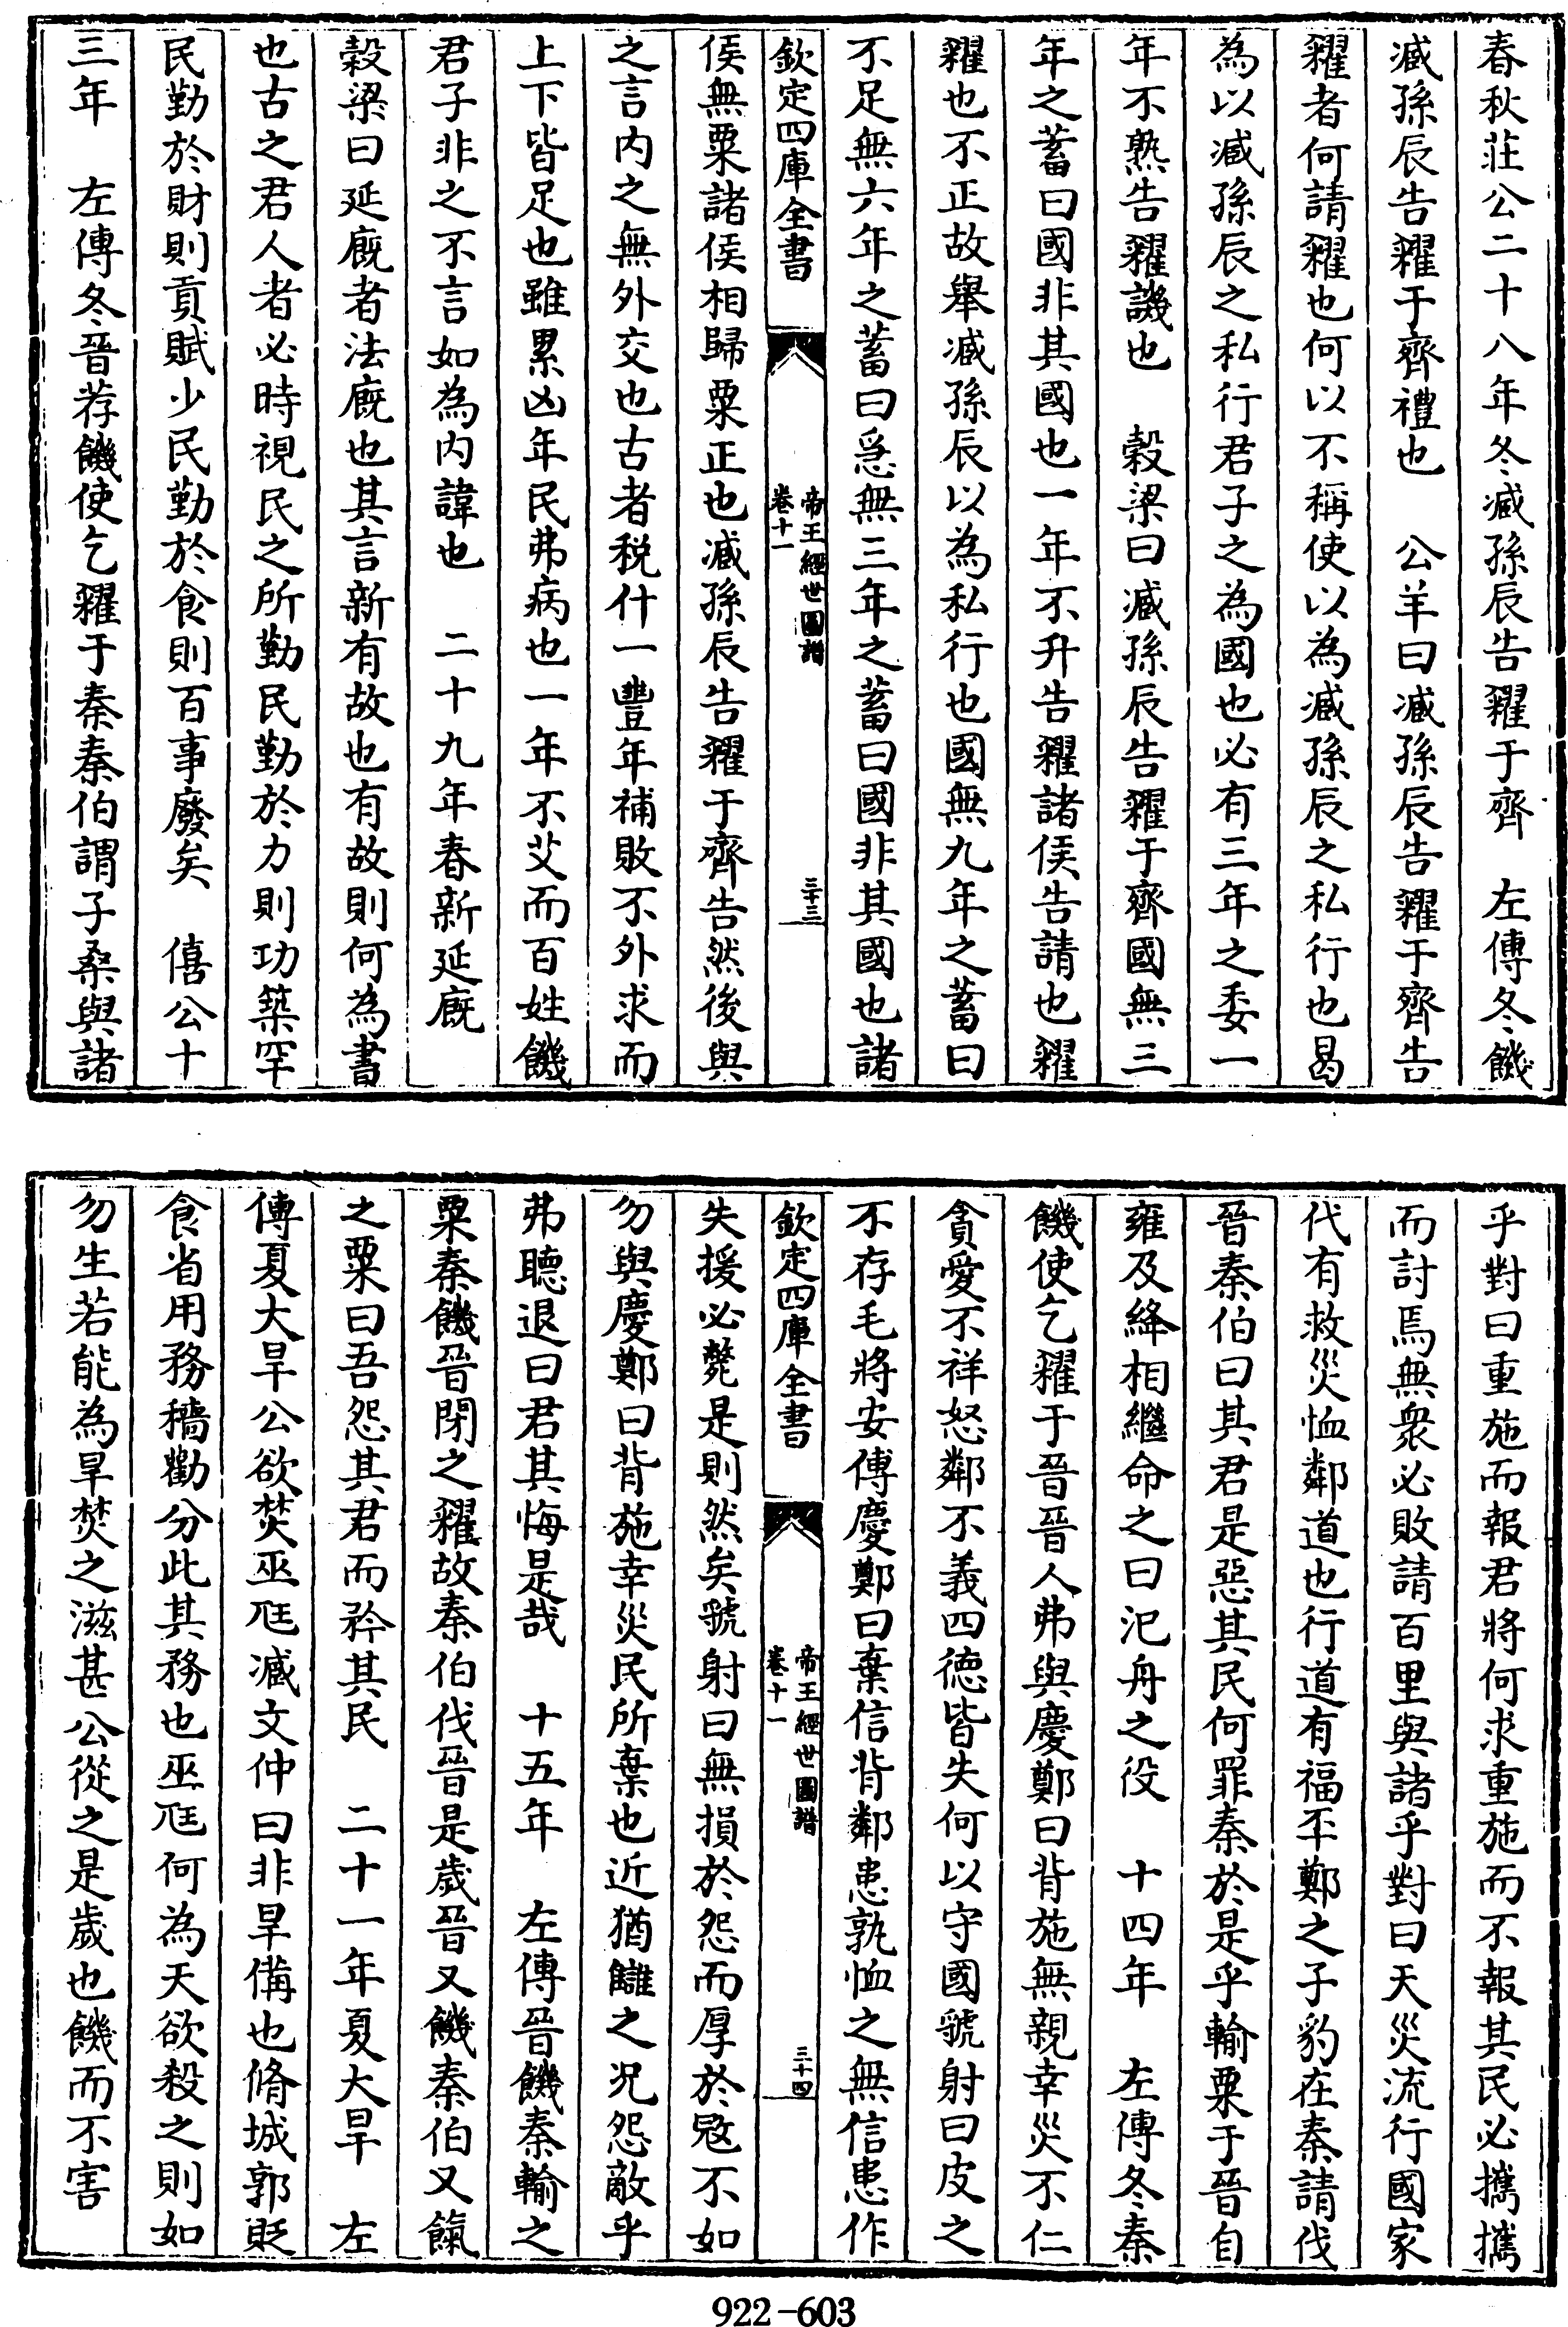 春秋莊公二十八年冬臧孫辰告糴于齊　左傳冬饑
臧孫辰告糴于齊禮也　公羊曰臧孫辰告糴于齊告
糴者何請糴也何以不稱使以為臧孫辰之私行也曷
為以臧孫辰之私行君子之為國也必有三年之委一
年不熟告糴譏也　穀梁曰臧孫辰告糴于齊國無三
年之蓄曰國非其國也一年不升告糴諸侯告請也糴
糴也不正故舉臧孫辰以為私行也國無九年之蓄曰
不足無六年之蓄曰急無三年之蓄曰國非其國也諸
欽定四庫全書
帝王經世圖譜
卷十一
三十三
侯無粟諸侯相歸粟正也臧孫辰告糴于齊告然後與
之言内之無外交也古者税什一豐年補敗不外求而
上下皆足也雖累凶年民弗病也一年不艾而百姓饑
君子非之不言如為内諱也　二十九年春新延廐
穀梁曰延廐者法廐也其言新有故也有故則何為書
也古之君人者必時視民之所勤民勤於力則功築罕
民勤於財則貢賦少民勤於食則百事廢矣　僖公十
三年　左傳冬晉荐饑使乞糴于秦秦伯謂子桑與諸
乎對曰重施而報君將何求重施而不報其民必攜攜
而討焉無衆必敗請百里與諸乎對曰天災流行國家
代有救災恤鄰道也行道有福丕鄭之子豹在秦請伐
晉秦伯曰其君是惡其民何罪秦於是乎輸粟于晉自
雍及絳相繼命之曰汜舟之役　十四年　左傳冬秦
饑使乞糴于晉晉人弗與慶鄭曰背施無親幸災不仁
貪愛不祥怒鄰不義四德皆失何以守國虢射曰皮之
不存毛將安傅慶鄭曰棄信背鄰患孰恤之無信患作
欽定四庫全書
帝王經世圖譜
卷十一
三十四
失援必斃是則然矣虢射曰無損於怨而厚於寇不如
勿與慶鄭曰背施幸災民所棄也近猶讎之况怨敵乎
弗聽退曰君其悔是哉　十五年　左傳晉饑秦輸之
粟秦饑晉閉之糴故秦伯伐晉是歲晉又饑秦伯又餼
之粟曰吾怨其君而矜其民　二十一年夏大旱　左
傳夏大旱公欲焚巫尫臧文仲曰非旱備也脩城郭貶
食省用務穡勸分此其務也巫尫何為天欲殺之則如
勿生若能為旱焚之滋甚公從之是歲也饑而不害
922-603